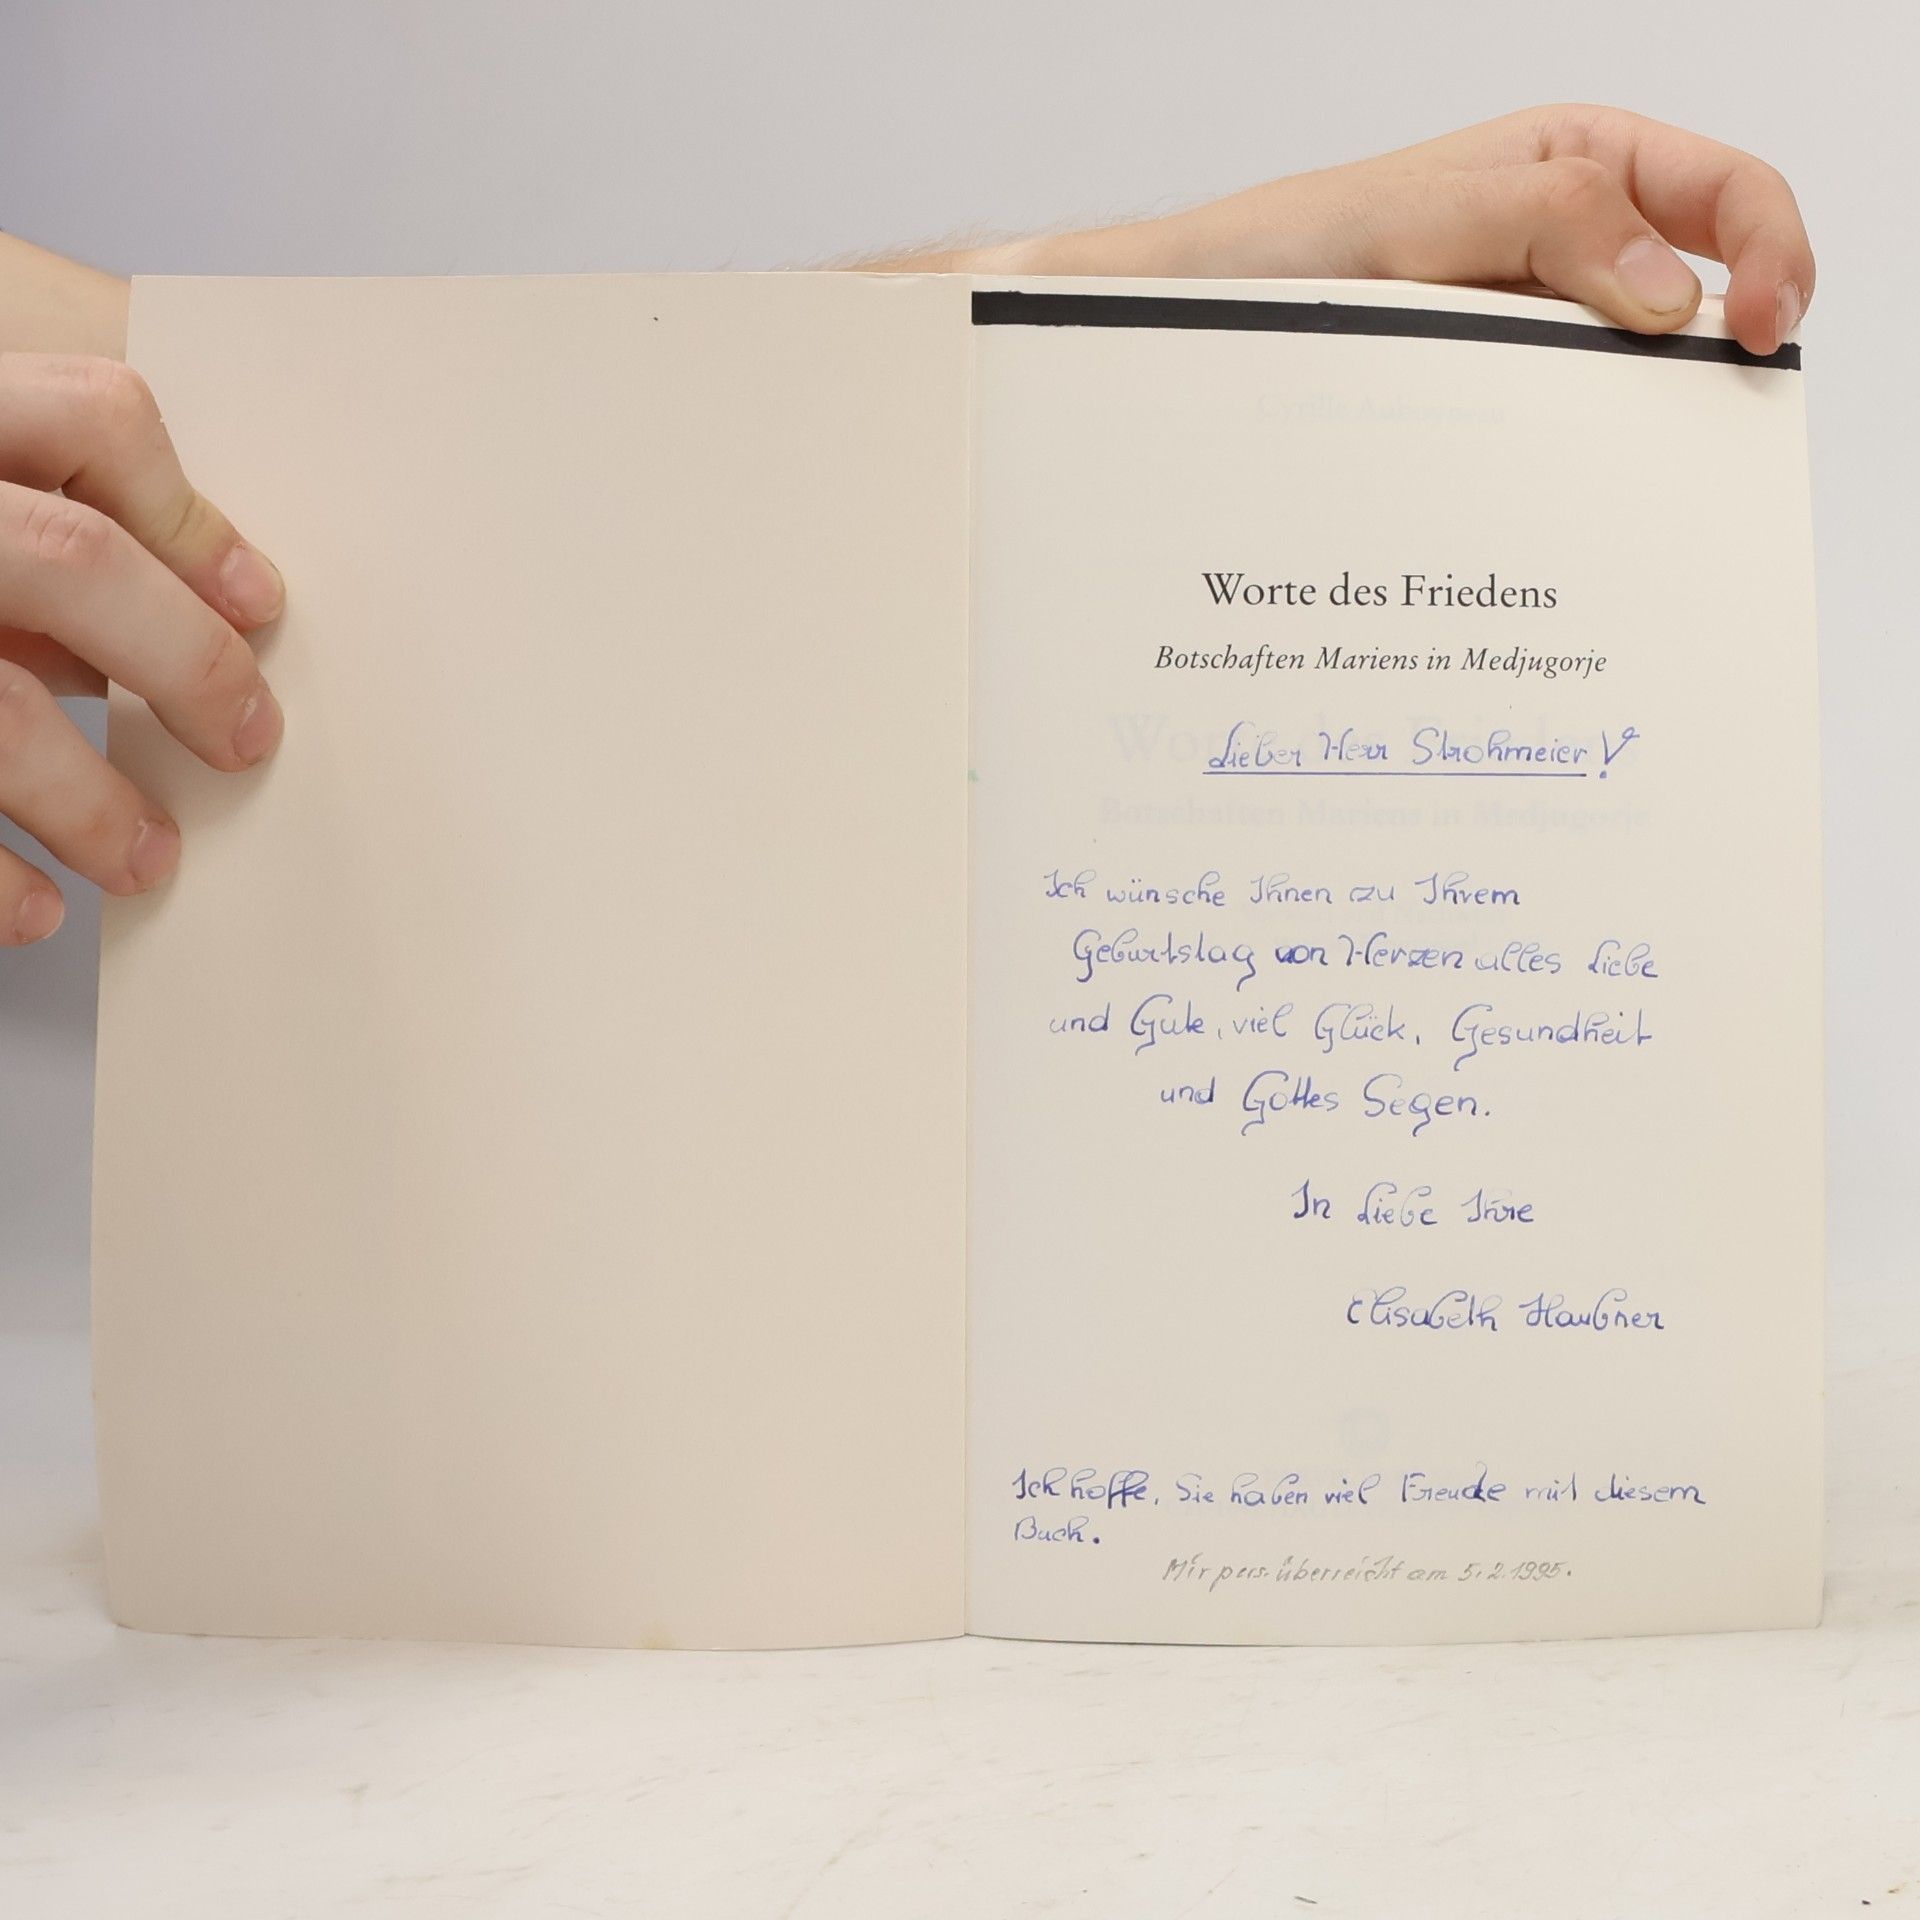 Worte des Friedens
Botschaften Mariens in Medjugorje
Lieber Herr Strohmeier!
Ich wünsche Ihnen zu Ihrem
Geburtstag von Herzen alles Liebe
und Gute, viel Glück, Gesundheit
und Gottes Segen.
In Liebe Ihre
Elisabeth Haubner
Ich hoffe, Sie haben viel Freude mit diesem
Buch.
Mir pers. überreicht am 5.2.1995.